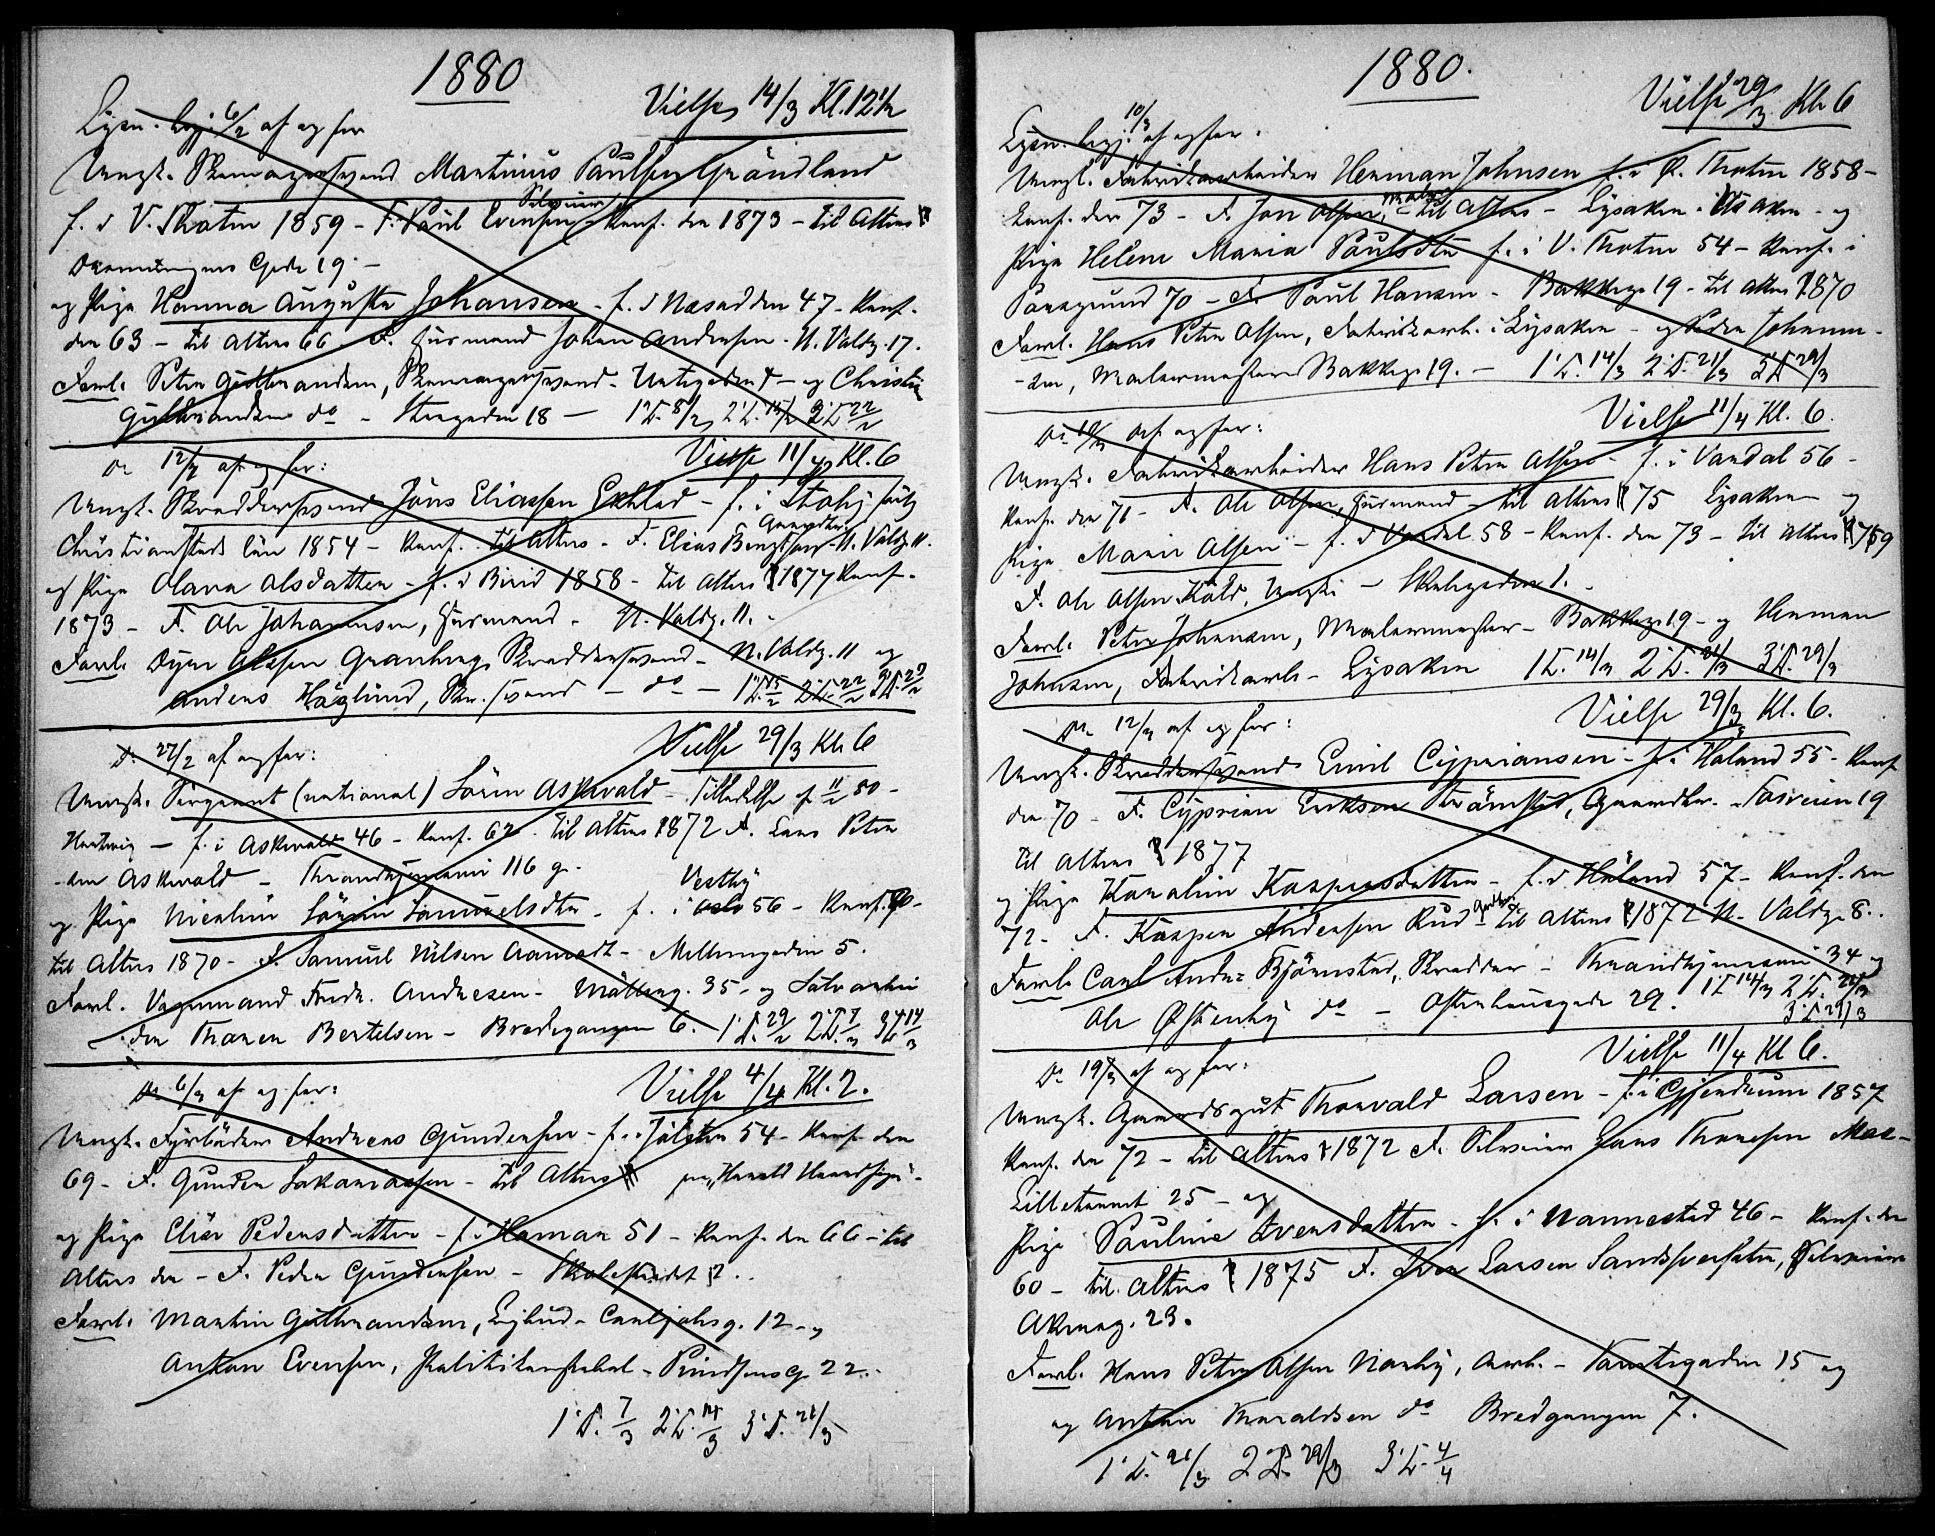 1880
Vielse 14/3 Kl. 12½
Lysn. begj. 6/2 af og for
Ungk. Skomagersvend Martinius Paulsen Grøndland
f. i V. Thoten 1859 - F. Paul Evensen Selveier Konf. der 1873 - til Alters
Dronningens Gade 19 -
og Pige Hanna Augusta Johansen - f. i Næsodden 47 - Konf.
der 63 - til Alters 66. F. Husmand Johan Andersen. N. Valdg. 17.
Forl. Peter Gulbrandsen, Skomagersvend - - og Christian
Gulbrandsen do - Storgaden 18 - 1 L. 8/2 2 L. 15/2 3 L. 22/2
Do 12/2 af og for:
Vielse 11/4 Kl. 6
Ungk. Skreddersvend Jöns Eliassen Ekblad - f. i
Christianstads län 1854 - Konf. til Alters - F. Elias Bengtsen Gaardbr. N. Valdg. 11.
og Pige Olava Olsdatter - f. i Birid 1858 - til Alters 1877 Konf.
1873 - F. Ole Johannesen, Husmand - N. Valdg. 11. -
Forl. Olsen Granberg, Skreddersvend - N. Valdg. 11 og
Anders Höglund, Skr. svend - do - 1 L. 15/2 2 L. 22/2 3 L. 29/2
Do 27/2 af og for:
Vielse 29/3 Kl. 6
Ungk. Sergeant (national) Sørin Askvold - Tilladelse af 11/2 80 -
Hartvig - f. i Askvold 46 - Konf. 62 - til Alters 1872 F. Lars Peter
sen Askvold - Trondhjemsvei 116 g.
og Pige Nicoline Sörine Samuelsdtr - f. i Vestby 56 - Konf. 70 -
til Alters 1870 - F. Samuel Nilsen Aamodt - Mellemgaden 5.
Forl. Vognmand Fredr. Andresen - Mölleng. 35 - og
den Thoren Bertelsen - Bredegangen 6. 1 L. 29/2 2 L. 7/3 3 L. 14/3
Do 6/3 af og for:
Vielse 4/4 Kl. 2.
Ungk. Fyrböder Andreas Gundersen - f. i Jölster 54 - Konf. der
69 - F. Gunder Sakariassen - til Alters paa "Harald Haarfager".
og Pige Elise Pedersdatter - f. i Hamar 51 - Konf. der 66 - til
Alters der - F. Peder Gundersen - Skolestrædet 2.
Forl. Martin Gulbrandsen, Leibud - Carl Johansg. 12 - og
Anton Evensen, Politikonstabel - Prindsensg. 22.
1 L. 7/3 2 L. 14/3 3 L. 21/3
1880.
Vielse 29/3 Kl. 6
Lysn. begj. 10/3 af og for.
Ungk. Fabrikarbeider Herman Johnsen f. i Ø. Thoten 1858 -
konf. der 73 - F. Jon Olsen, - til Alters - Lysaker - V. Aker - og
Pige Helene Maria Paulsdtr f. i V. Thoten 54 - konf. i
Porsgrund 70 - F. Paul Hansen - Bakkeg. 19 - til Alters 1870
Forl. Hans Peter Olsen, Fabrikarb. i Lysaker - og Peder Johann-
sen, Malermester Bakkeg. 19. - 1 L. 14/3 2 L. 21/3 3 L. 29/3
Do 10/3 af og for:
Vielse 11/4 Kl. 6.
Ungk. Fabrikarbeider Hans Peter Olsen - f. i Vardal 56 -
Konf. der 71 - F. Ole Olsen, Husmand - til Alters 75 Lysaker og
Pige Marie Olsen - f. i Vardal 58 - Konf. der 73 - til Alters 79
F. Ole Olsen Kold, - 1. -
Forl. Peter Johansen, Malermester - Bakkeg. 19 - og Herman
Johnsen, Fabrikarb - Lysaker 1 L. 14/3 2 L. 21/3 3 L. 29/3
Do 12/3 af og for:
Vielse 29/3 Kl. 6.
Ungk. Skreddersvend Emil Cypriansen - f. i Höland 55 - Konf
der 70 - F. Cyprian Eriksen, Gaardbr. - Fosveien 19
til Alters 1877
og Pige Karoline Kaspersdatter - f. i Höland 57 - Konf. der
72 - F. Kasper Andersen Rud Gaardbr. - til Alters 1872 N. Valdg. 8.
Forl. Carl Andr. Björnstad, Skredder - Trondhjemsvei 34 og
Ole Østenby do - Osterhausgade 29. 1 L. 14/3 2 L. 21/3
3 L. 29/3
Do 19/3 af og for:
Vielse 11/4 Kl. 6.
Ungk. Gaardsgut Thorvald Larsen - f. i Gjerdrum 1857
konf. der 72 - til Alters 1872 F. Selveier Lars Thoresen Moe -
Lilletorvet 25 - og
Pige Pauline Iversdatter - f. i Nannestad 46 - Konf. der
60 - til Alters 1875 F. Iver Larsen, Selveier
Akersg. 23.
Forl. Hans Peter Olsen Norby, Arb. - Tomtegaden 15 og
og Anton Haraldsen do Bredgangen 7.
1 L. 21/3 2 L. 29/3 3 L. 4/4